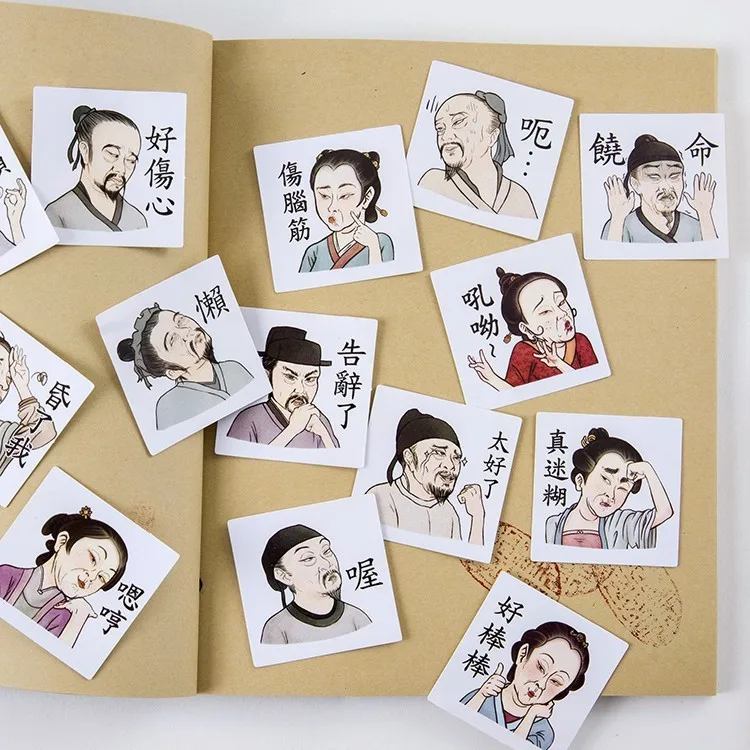 好傷心
傷腦筋
呃…
饒命
懶
告辭了
吼呦~
昏了我
太好了
真迷糊
嗯哼
喔
好棒棒